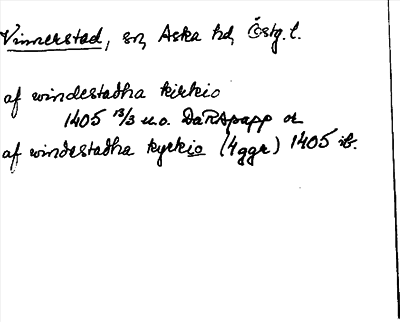 Vinnerstad, sn, Aska hd, Östg. l.
af windestadha kirkio
1405 13/3 u.o. DaRApapp or
af windestadha kyrkio (4 ggr) 1405 ib.